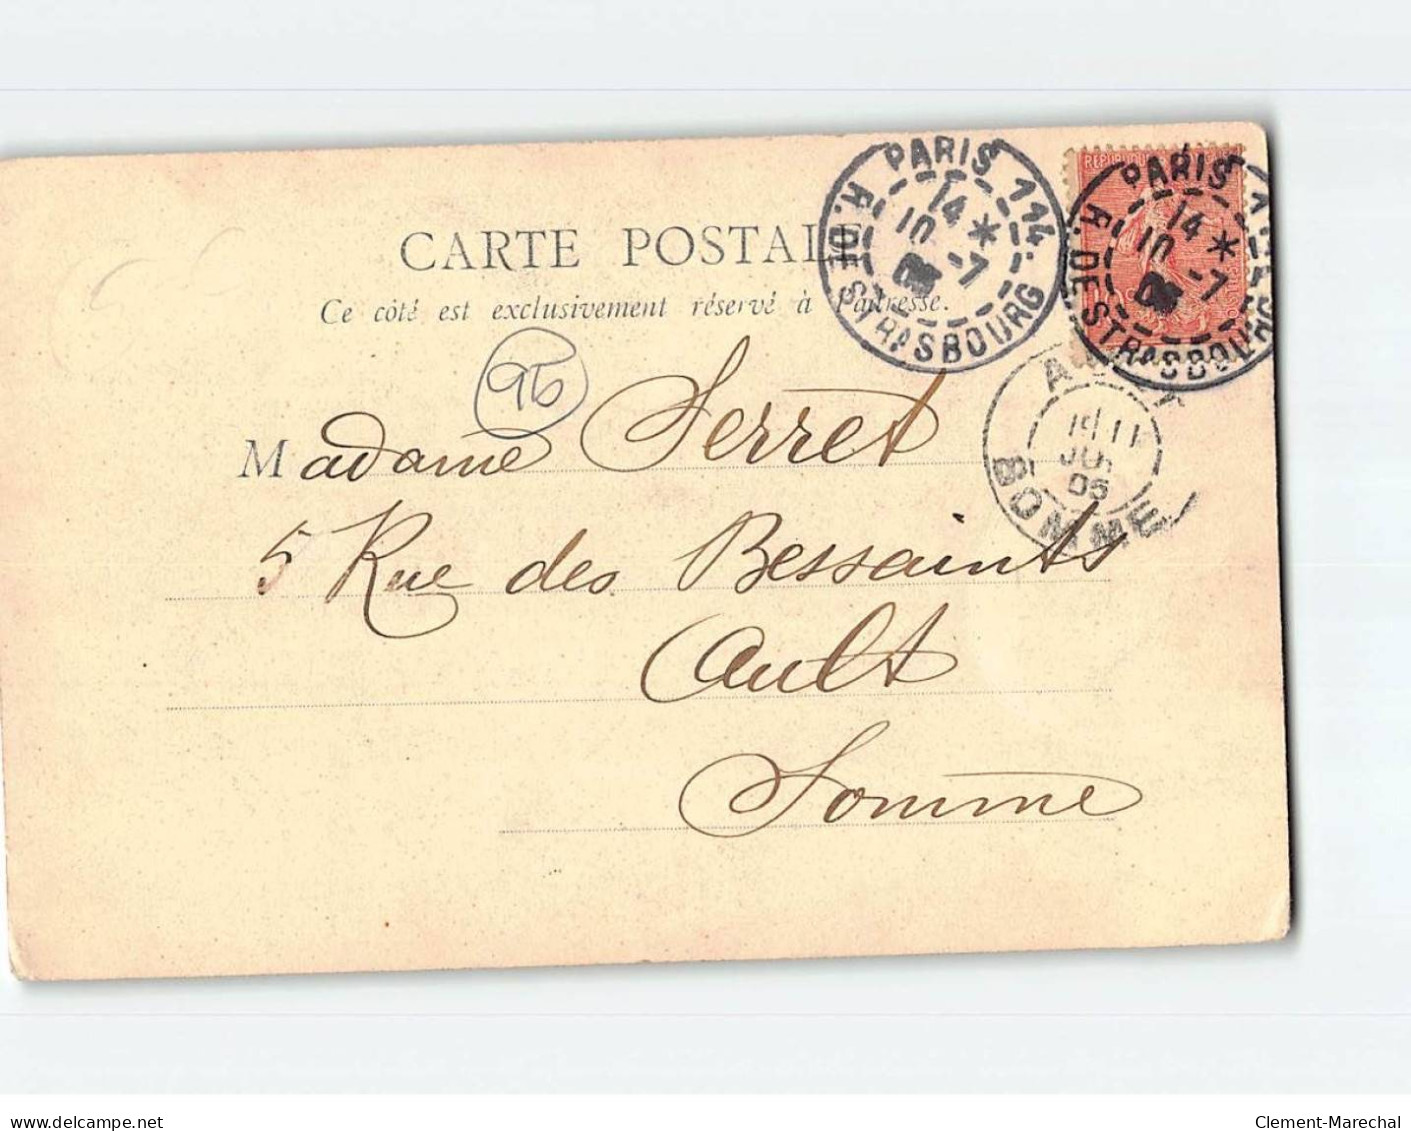 CARTE POSTALE
Ce côté est exclusivement réservé à l'adresse.
PARIS 114
R. DE STRASBOURG
14 *
10 -7
PARIS
R. DE STRASBOURG
14 *
10 -7
AULT
SOMME
05
95
Madame Serret
5 Rue des Bessaints
Ault
Somme
delcampe.net
Clement-Marechal